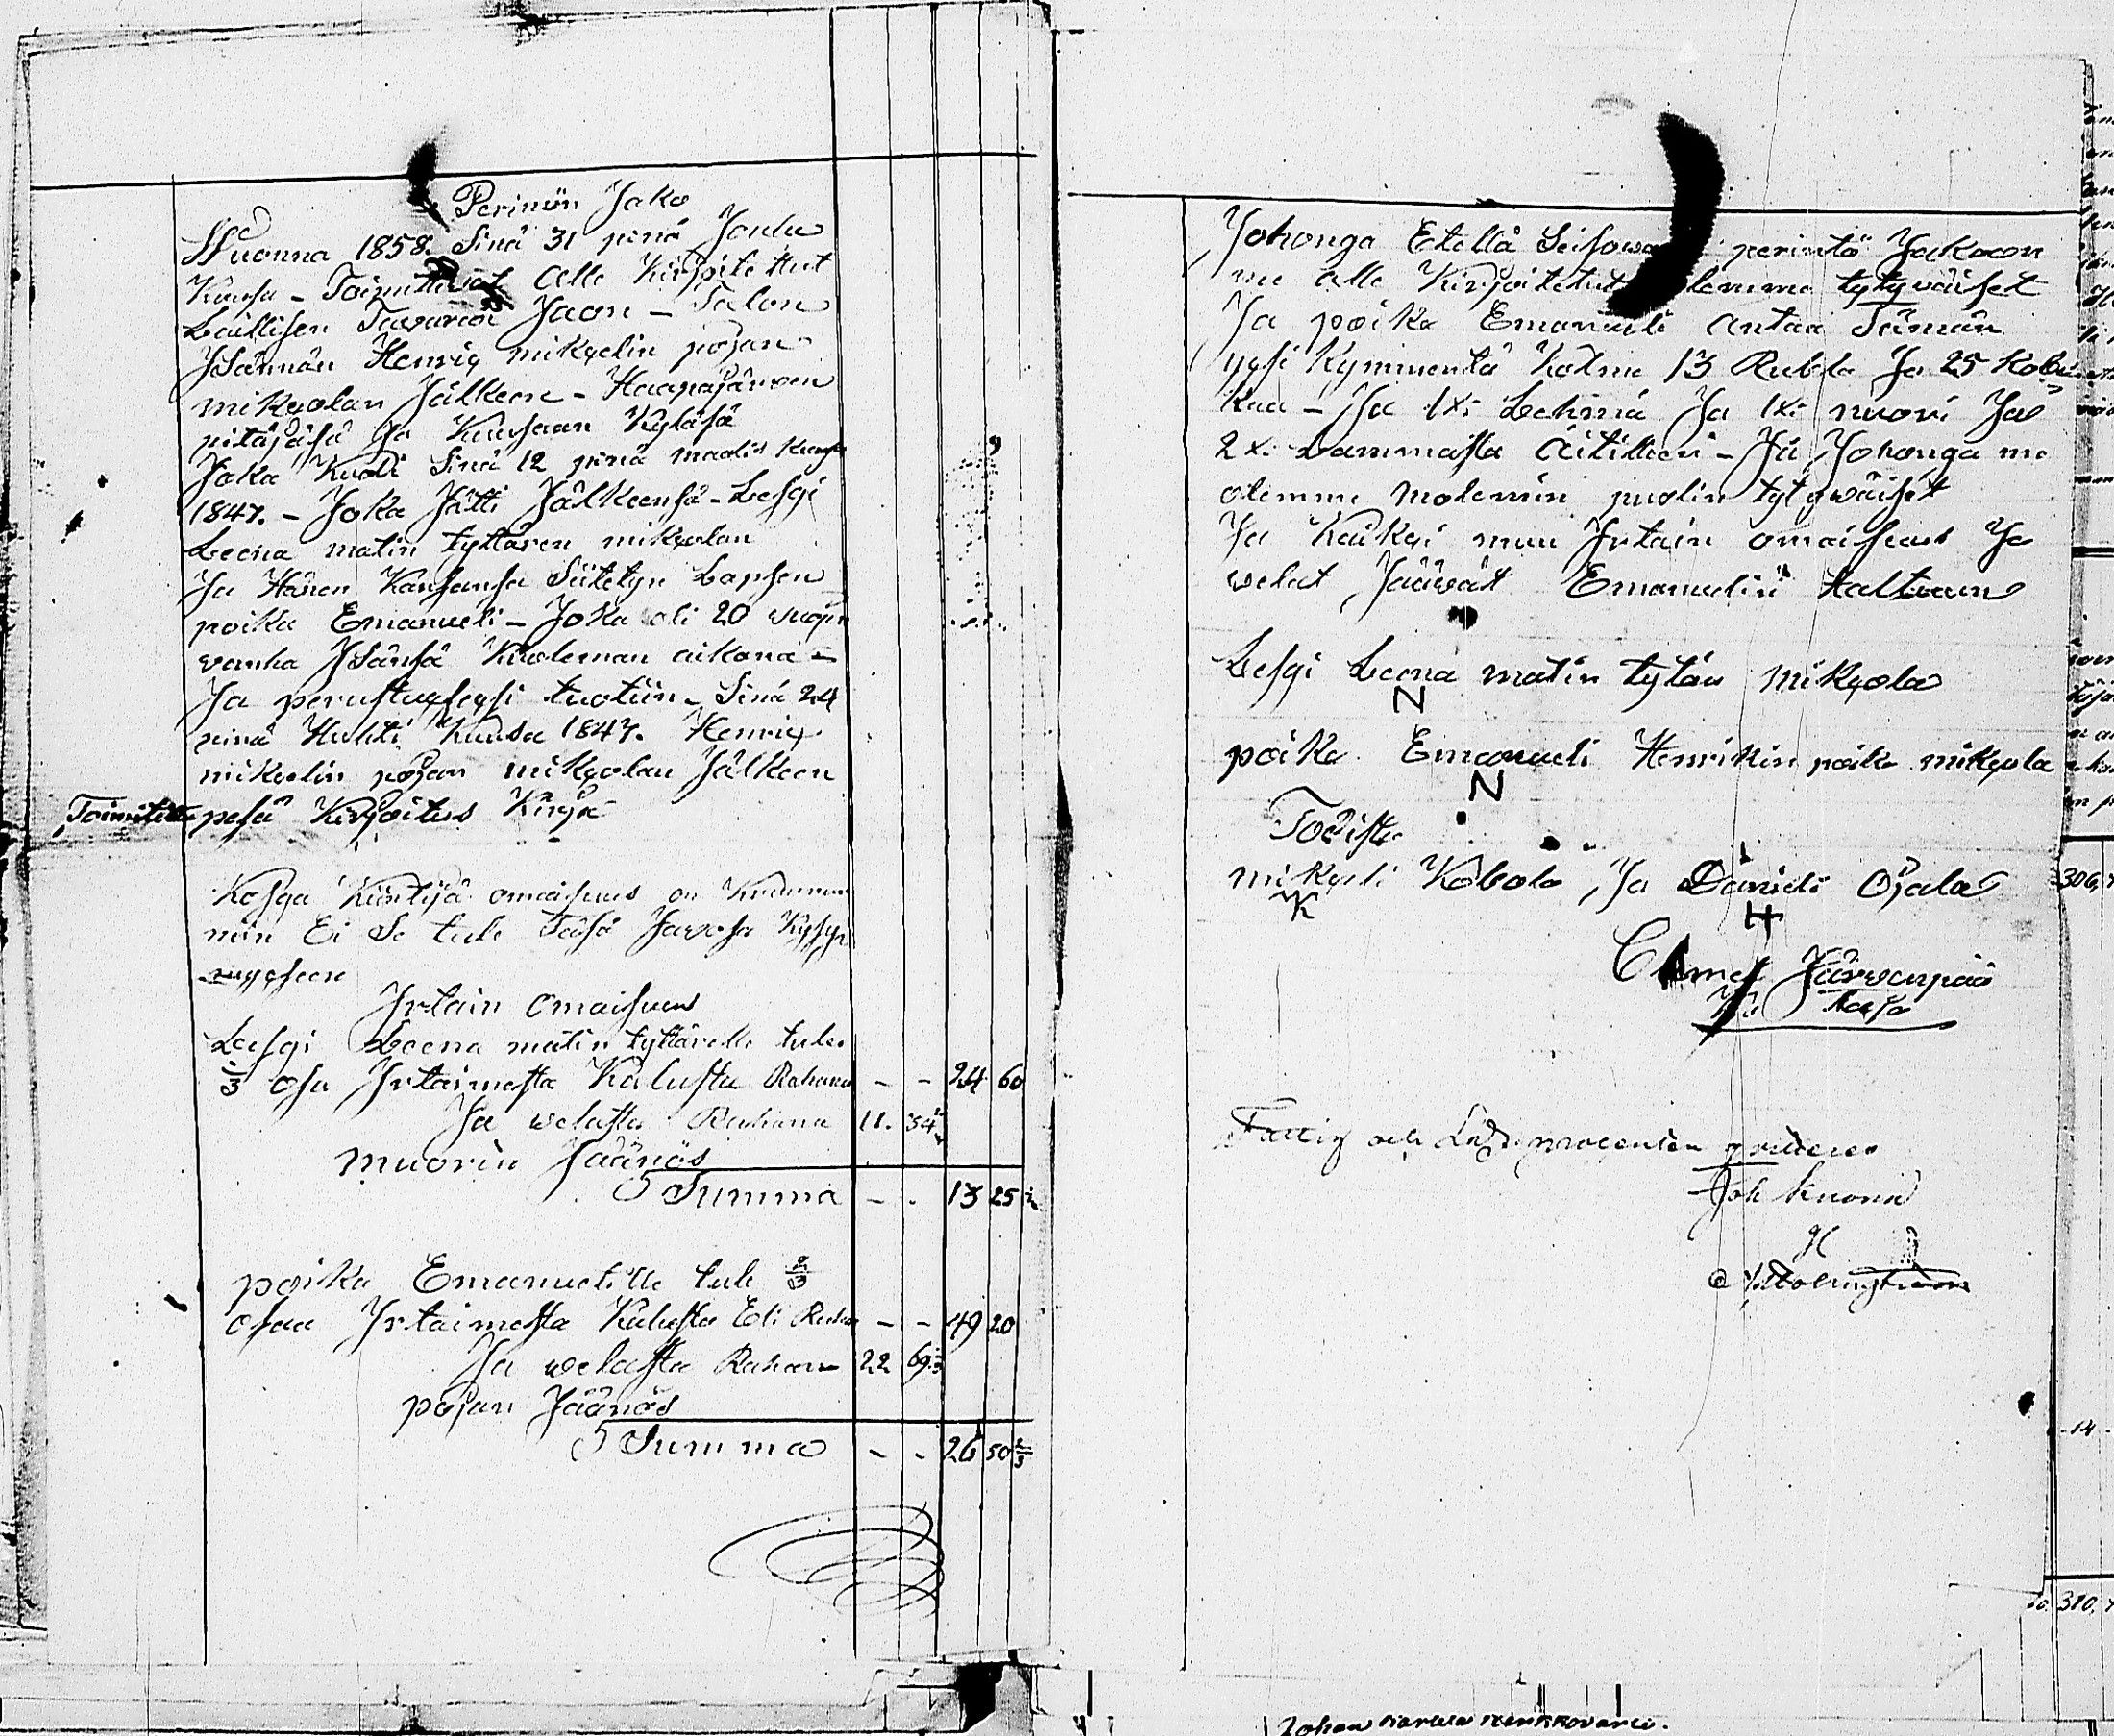 Perinön Jako
Wuonna 1858. Sinä 31 pinä Joulu
Kuusa - Toimittivat Alle Kirjoitettut
Laillisen Tavaran Jaon - Talon
Jsännän Henriq mikqelin pojan
mikqolan Jälkeen - Haapajärven
pitäjäsä Ja Kuusaan Kyläsä
Joka Kuoli Sinä 12 pinä maalis kuusa
1847. - Joka Jätti Jälkeensä - Lesqi
Leena matin tyttären mikqolan
Ja Hänen Kansansa Siitetyn Lapsen
poika Emanueli - Joka oli 20 wuojen
vanha Jsänsä Kuoleman aikana -
Ja perustuxsexsi tuotiin - Sinä 24
pinä Huhti Kuusa 1847. Henriq
mikqelin pojan mikqolan Jälkeen
Toimitettu pesä Kirjoitus Kirja
Kosqa Kiintijä omaisuus on Kruunun
niin Ei Se tule Täsä Jawosa Kysy
myxseen
Jrtain Omaisuus
Lesqi Leena matin tyttärelle tulee
1/3 osa Jrtaimesta Kalusta Rahana - - 24 60
Ja welasta Rahana 11. 34
muorin Jäänös
Summa - - 13 25
poika Emanuelille tule 2/3
osaa Jrtaimesta Kalusta Eli Rahana - - 49 20
Ja welasta Rahana 22 69
pojan Jäänös
Summa - - 26 50 2/3
Johonga Etellä Seisowa perintö Jakoon
me alle Kirjoitetut olemme tytywäiset
Ja poika Emanueli antaa Tämän
yqsi Kymmentä Kolme 13 Rubla Ja 25 Kobe
kaa - Ja 1xi Lehmä Ja 1xi nuori Ja
2xi Lammasta Äitilleen - Ja Johonga me
olemme molemin puolin tytywäiset
Ja Kaikqi muu Jrtain omaisuus Ja
welat Jääwät Emanuelin haltuun
Lesqi Leena matin tytär Mikqola
N
poika Emanueli Henrikin poika mikqola
N
Todista
mikqeli Kobola Ja Danieli Ojala
K H
Järwenpää
Fattig och procenten
Joh Kuona